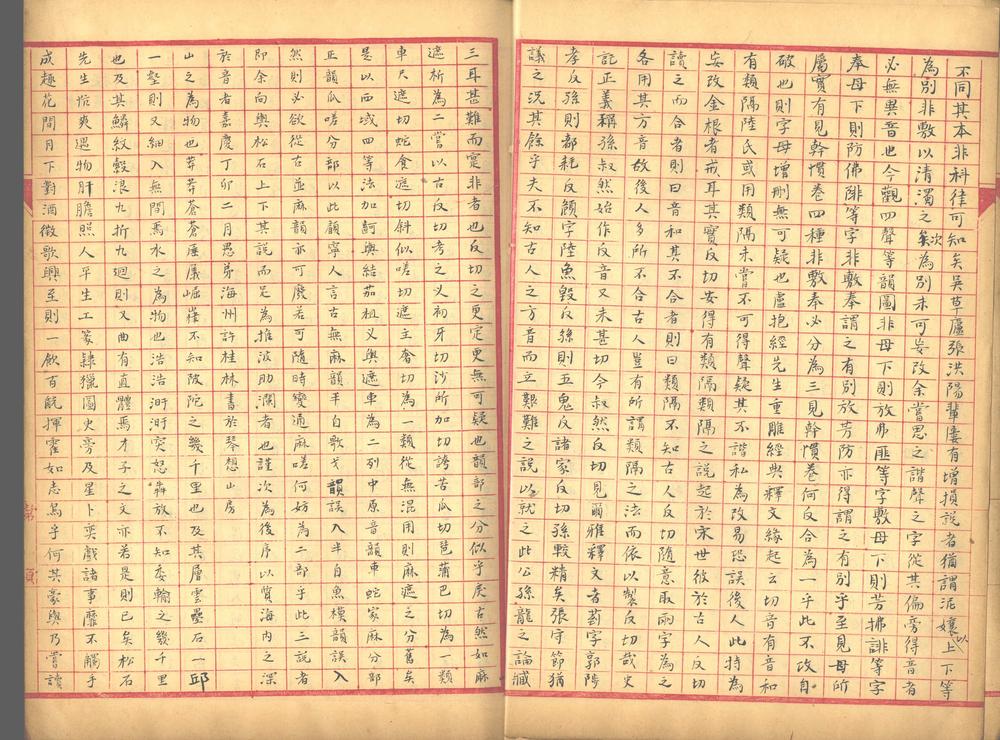 不同其本非科律可知矣吳草廬張洪陽輩屢有增損説者猶謂泥孃以上下等
為別非敷以清濁之次為別未可妄改余嘗思之諧聲之字從其偏旁得音者
必無異音也今觀四聲等韻圖非母下則放弗匪等字敷母下則芳拂誹等字
奉母下則防佛陫等字非敷奉謂之有別放芳防亦得謂之有別乎至見母所
屬實有見幹慣卷四種非敷奉必分為三見幹慣卷何反合為一乎此不攻自
破也則字母增刪無可疑也盧抱經先生重雕經典釋文緣起云切音有音和
有類隔陸氏或用類隔未嘗不可得聲疑其不諧私為改易恐誤後人此特為
妄改金根者戒耳其實反切安得有類隔類隔之説起於宋世彼於古人反切
讀之而合者則曰音和其不合者則曰類隔不知古人反切随意取兩字為之
各用其方音故後人多所不合古人豈有所謂類隔之法而依以製反切哉史
記正義稱孫叔然始作反音又未甚切今叔然反切見爾雅釋文者葯字郭陟
孝反孫則都耗反顔字陸魚毀反孫則五鬼反諸家反切孫較精矣張守節猶
議之況其餘乎夫不知古人之方音而立艱難之説以就之此公孫龍之論臧
三耳甚難而寔非者也反切之更定更無可疑也韻部之分似乎戾古然如麻
遮析為二嘗以古反切考之乂初牙切沙所加切誇苦瓜切琶蒲巴切為一類
車尺遮切蛇食遮切斜似嗟切遮主奢切為一類從無混用則麻遮之分舊矣
是以西域四等法加訶與結茄相乂與遮車為二列中原音韻車蛇家麻分部
正韻瓜嗟分部以此顧寧人言古無麻韻半自歌戈韻誤入半自魚模韻誤入
然則必欲從古並麻韻亦可廢若可隨時變通麻嗟何妨為二部乎此三説者
即余向與松石上下其説而足為推波助瀾者也謹次為後序以質海内之深
於音者嘉慶丁卯二月愚弟海州許桂林書於琴想山房
山之為物也莽莽蒼蒼厜㕒崛崔不知陂陀之幾千里也及其層雲壘石一邱
一壑則又細入無間焉水之為物也浩浩汙汙突怒犇放不知委輸之幾千里
也及其鱗紋縠浪九折九廻則又曲有直體焉才子之文亦若是則已矣松石
先生忼爽遇物肝膽照人平生工篆隸獵圖史旁及星卜奕戲諸事靡不觸手
成趣花間月下對酒徵歌興至則一飲百觥揮霍如志烏乎何其豪與乃嘗讀